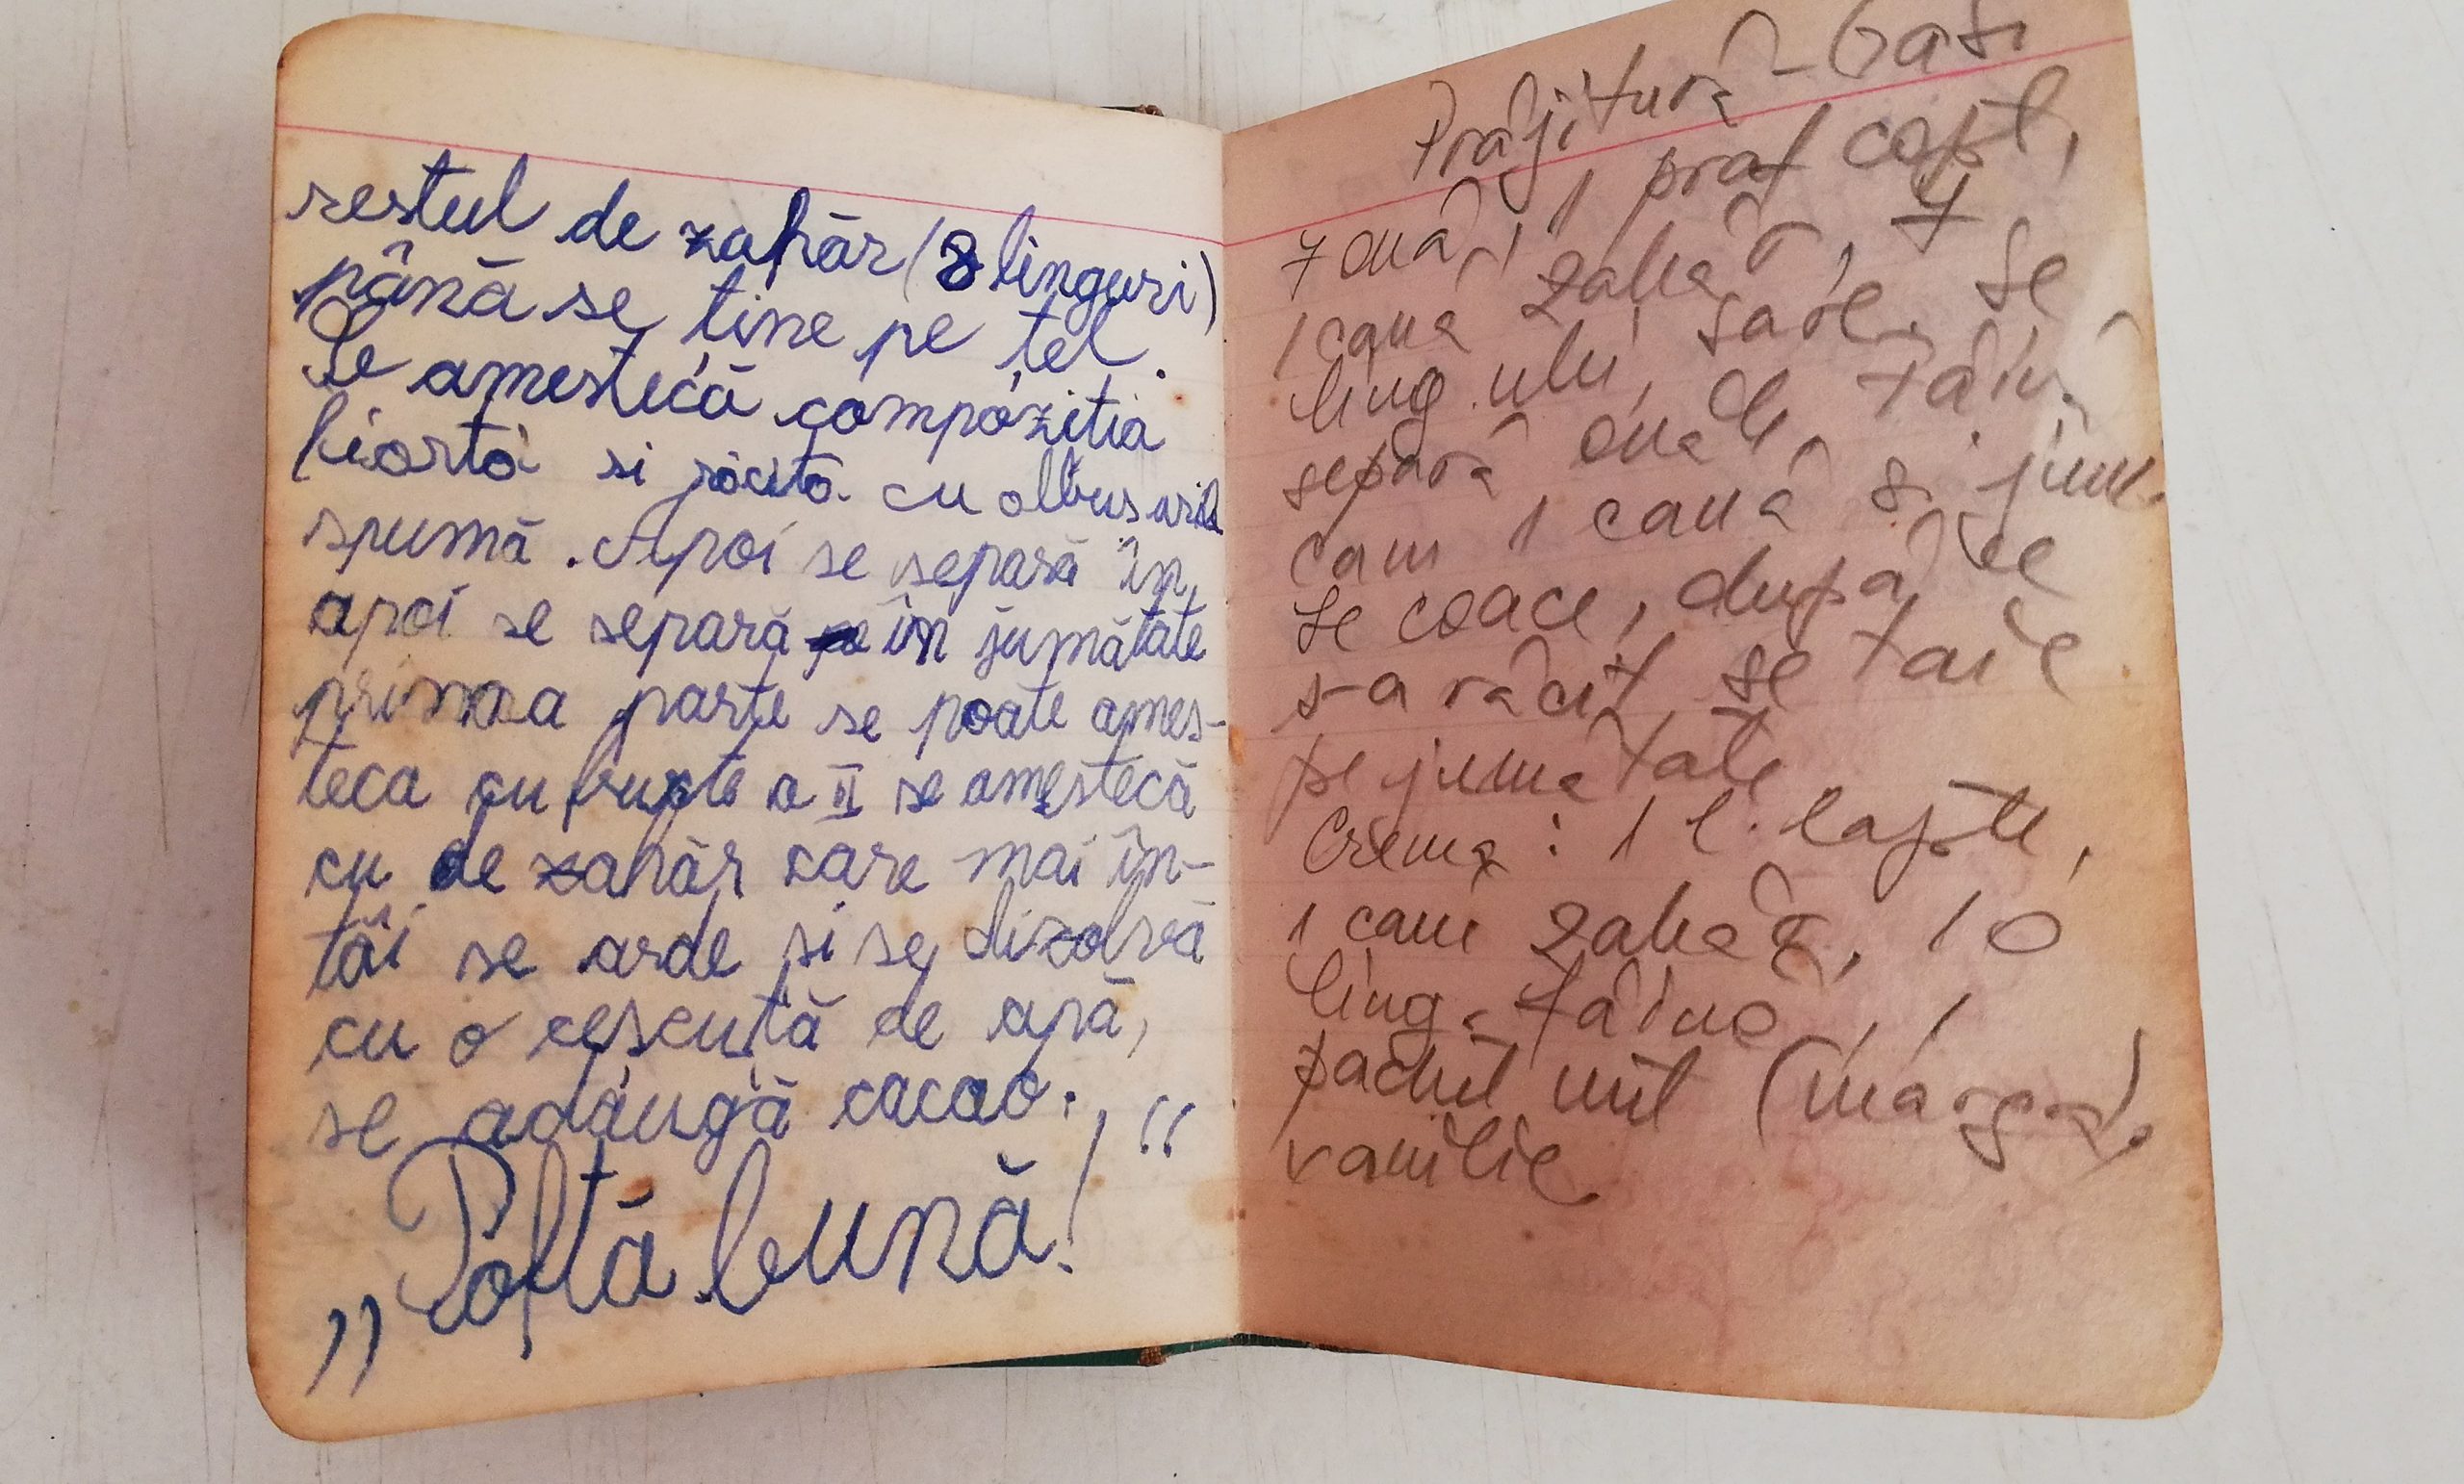 restul de zahăr (8 linguri)
până se tine pe tel.
Se amestecă compozitia
fiartă si răcită cu albus
spumă. Apoi se separă în
apoi se separă în jumătate
prima parte se poate ames-
teca cu fructe a II se amestecă
cu de zahăr care mai în-
tâi se arde și se dizolvă
cu o ceșcuță de apă,
se adaugă cacao.
„Poftă bună!“
Prăjitură - Gabi
7 ouă, 1 praf copt,
1 cană zahăr, 7
ling ulei, sare. Se
separă ouăle, făină
cam 1 cană și jum.
Se coace, după ce
s-a răcit se taie
pe jumătate
Crema: 1 l. lapte,
1 cană zahăr, 10
ling. făină, 1
pachet unt (margar),
vanilie